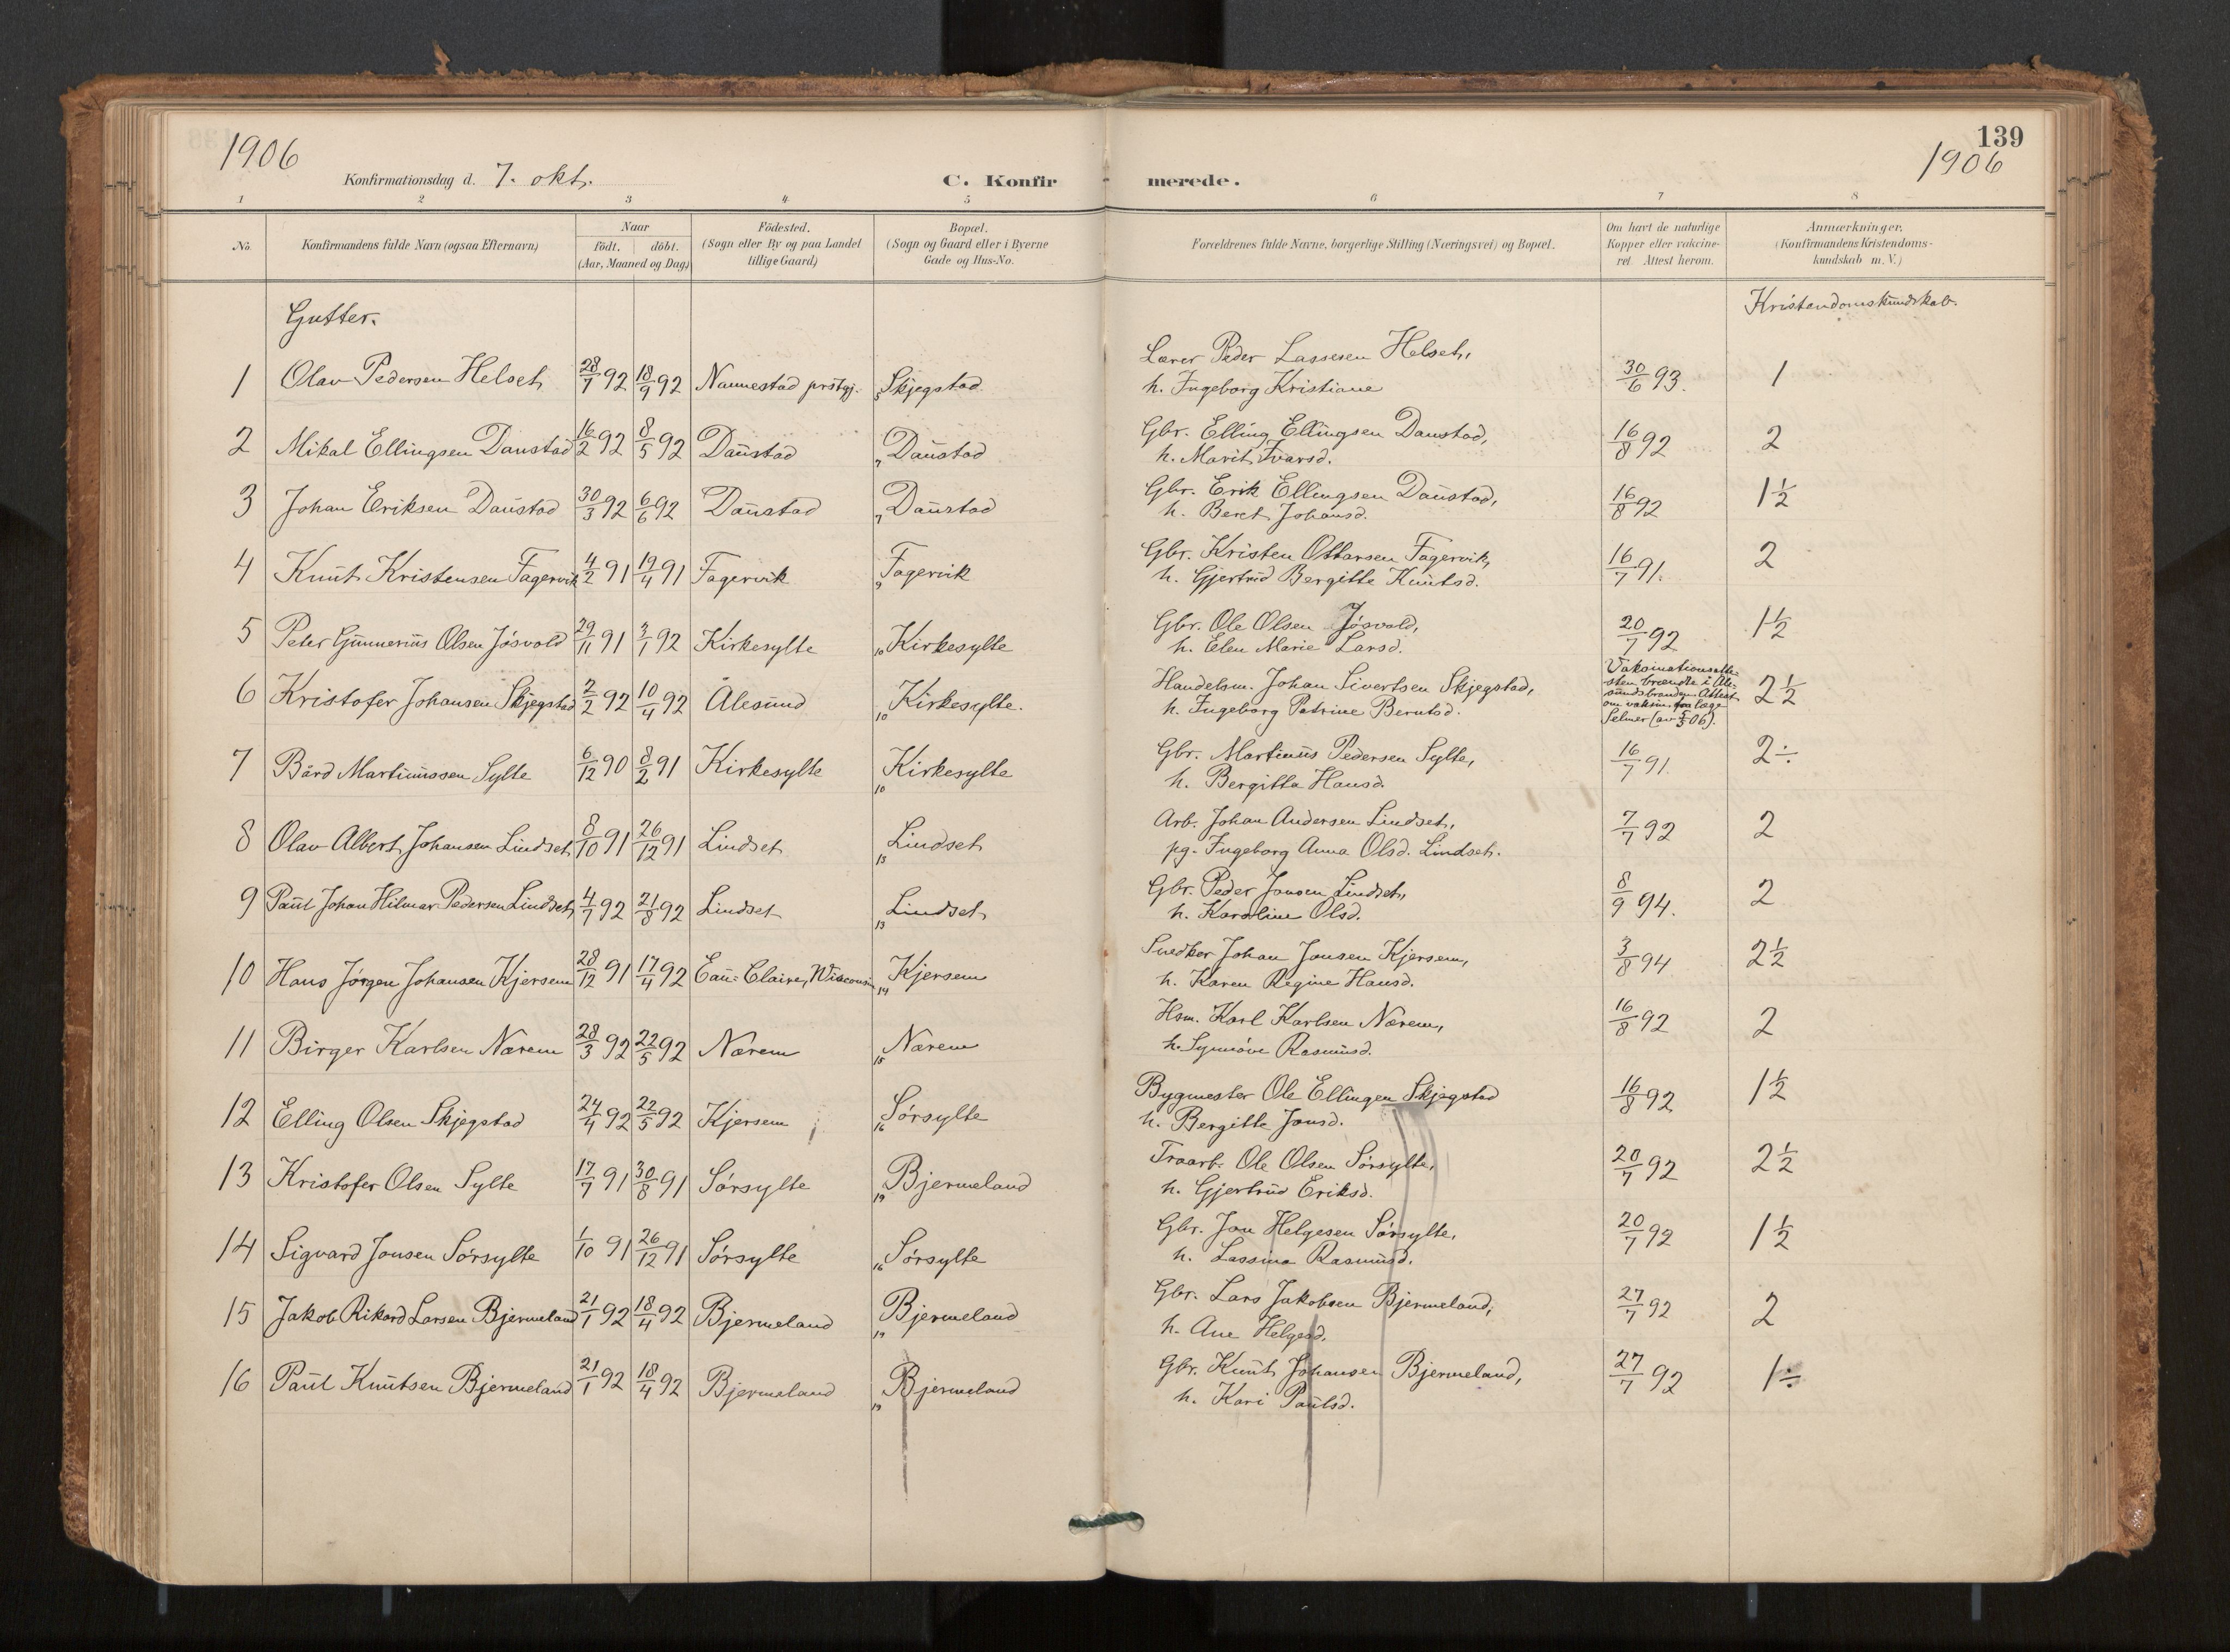 1906
139
1906
Konfirmationsdag d. 7. okt.
C. Konfirmerede.
1 2 3 4 5 6 7 8
No. Konfirmandens fulde Navn (ogsaa Efternavn) Naar født. døbt. (Aar, Maaned og Dag) Födested. (Sogn eller By og paa Landet tillige Gaard) Bopæl. (Sogn og Gaard eller i Byerne Gade og Hus-No. Forældrenes fulde Navne, borgerlige Stilling (Næringsvei) og Bopæl. Om havt de naturlige Kopper eller vakcineret. Attest herom. Anmærkninger. (Konfirmandens Kristendomskundskab m. V.)
Gutter. Kristendomskundskab.
1 Olav Pedersen Helset 28/7 92 18/9 92 Nannestad prstgj. 5 Skjegstad Lærer Peder Lassesen Helset, 30/6 93. 1
h. Ingeborg Kristiane
2 Mikal Ellingsen Daustad 16/2 92 8/5 92 Daustad 7 Daustad Gbr. Elling Ellingsen Daustad, 16/8 92 2
h. Marit Ivarsd.
3 Johan Eriksen Daustad 30/3 92 6/6 92 Daustad 7 Daustad Gbr. Erik Ellingsen Daustad, 16/8 92 1½
h. Beret Johansd.
4 Knut Kristensen Fagervik 4/2 91 19/4 91 Fagervik 9 Fagervik Gbr. Kristen Ottarsen Fagervik, 16/7 91. 2
h. Gjertrud Bergitte Knutsd.
5 Peter Gunnerius Olsen Jøsvold 29/11 91 3/1 92 Kirkesylte 10 Kirkesylte Gbr. Ole Olsen Jøsvold, 20/7 92 1½
h. Elen Marie Larsd.
6 Kristofer Johansen Skjegstad 2/2 92 10/4 92 Ålesund 10 Kirkesylte. Handelsm. Johan Sivertsen Skjegstad, 2½
h. Ingeborg Petrine Berntsd.
Vaksinationsatte-
sten brændte i Åle-
sundsbranden. Attest
om vaksin. fra læge
Selmer
7 Bård Martinussen Sylte 6/12 90 8/2 91 Kirkesylte 10 Kirkesylte Gbr. Martinus Pedersen Sylte, 16/7 91. 2÷
h. Bergitta Hansd.
8 Olav Albert Johansen Lindset 8/10 91 26/12 91 Lindset 13 Lindset Arb. Johan Andersen Lindset, 7/7 92 2
pg. Ingeborg Anna Olsd. Lindset.
9 Paul Johan Hilmar Pedersen Lindset 4/7 92 21/8 92 Lindset 13 Lindset Gbr. Peder Jonsen Lindset, 8/9 94. 2
h. Karoline Olsd.
10 Hans Jørgen Johansen Kjersem 28/12 91 17/4 92 Eau-Claire, Wisconsin 14 Kjersem Snedker Johan Jonsen Kjersem, 3/8 94 2½
h. Karen Regine Hansd.
11 Birger Karlsen Nærem 28/3 92 22/5 92 Nærem 15 Nærem Hsm. Karl Karlsen Nærem, 16/8 92 2
h. Synnøve Rasmusd.
12 Elling Olsen Skjegstad 24/4 92 22/5 92 Kjersem 16 Sørsylte Bygmester Ole Ellingen Skjegstad 16/8 92 1½
h. Bergitte Jonsd.
13 Kristofer Olsen Sylte 17/7 91 30/8 91 Sørsylte 19 Bjermeland Traarb. Ole Olsen Sørsylte, 20/7 92 2½
h. Gjertrud Eriksd.
14 Sigvard Jonsen Sørsylte 1/10 91 26/12 91 Sørsylte 16 Sørsylte Gbr. Jon Helgesen Sørsylte, 20/7 92 1½
h. Lassina Rasmusd.
15 Jakob Rikard Larsen Bjermeland 21/1 92 18/4 92 Bjermeland 19 Bjermeland Gbr. Lars Jakobsen Bjermeland, 27/7 92 2
h. Ane Helgesd.
16 Paul Knutsen Bjermeland 21/1 92 18/4 92 Bjermeland 19 Bjermeland Gbr. Knut Johansen Bjermeland, 27/7 92 1÷
h. Kari Paulsd.